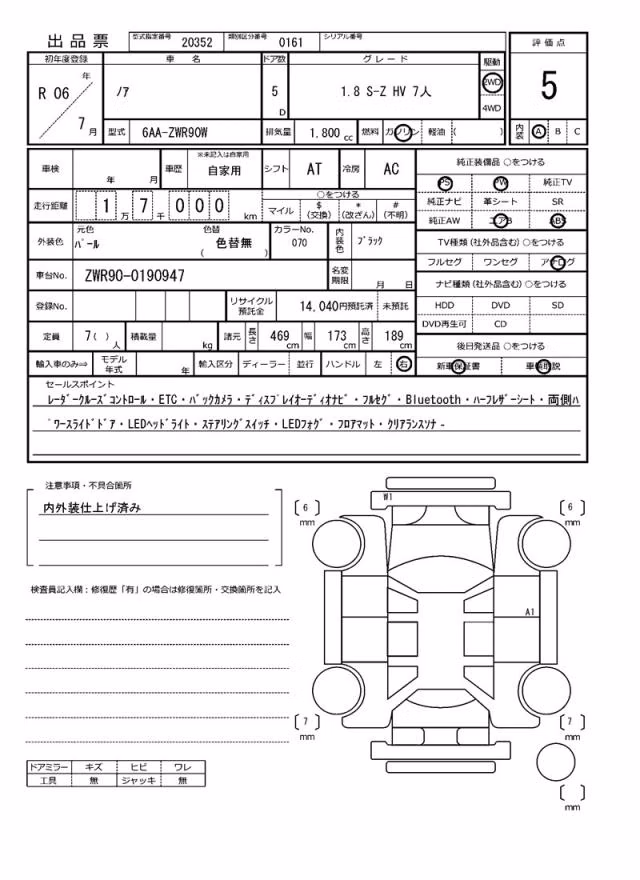 出品票 型式指定番号 20352 類別区分番号 0161 シリアル番号
初年度登録 車名 ドア数 グレード 駆動 評価点
R 06 年 7 月 ノア 5 D 1.8 S-Z HV 7人 2WD 4WD 5
型式 6AA-ZWR90W 排気量 1.800 cc 燃料 ガソリン 軽油 ( ) 内装 A B C
車検 年 月 車歴 ※未記入は自家用 自家用 シフト AT 冷房 AC 純正装備品 ○をつける
PS PW 純正TV
走行距離 1 万 7 千 0 0 0 km ○をつける 純正ナビ 革シート SR
マイル $ (交換) * (改ざん) # (不明) 純正AW エアB ABS
外装色 元色 パール 色替 色替無 ( ) カラーNo. 070 内装色 ブラック TV種類 (社外品含む) ○をつける
フルセグ ワンセグ アナログ
車台No. ZWR90-0190947 名変期限 月 日 ナビ種類 (社外品含む) ○をつける
登録No. リサイクル預託金 14,040円預託済 未預託 HDD DVD SD
DVD再生可 CD
定員 7 ( ) 人 積載量 kg 諸元 長さ 469 cm 幅 173 cm 高さ 189 cm 後日発送品 ○をつける
輸入車のみ⇒ モデル年式 年 輸入区分 ディーラー 並行 ハンドル 左 右 新車保証書 車輌取説
セールスポイント
レーダークルーズコントロール・ETC・バックカメラ・ディスプレイオーディオナビ・フルセグ・Bluetooth・ハーフレザーシート・両側ハ
゚ワースライドドア・LEDヘッドライト・ステアリングスイッチ・LEDフォグ・フロアマット・クリアランスソナー
注意事項・不具合箇所
内外装仕上げ済み
検査員記入欄:修復歴「有」の場合は修復箇所・交換箇所を記入
W1
6 mm 6 mm
A1
7 mm 7 mm
mm
ドアミラー キズ ヒビ ワレ
工具 無 ジャッキ 無